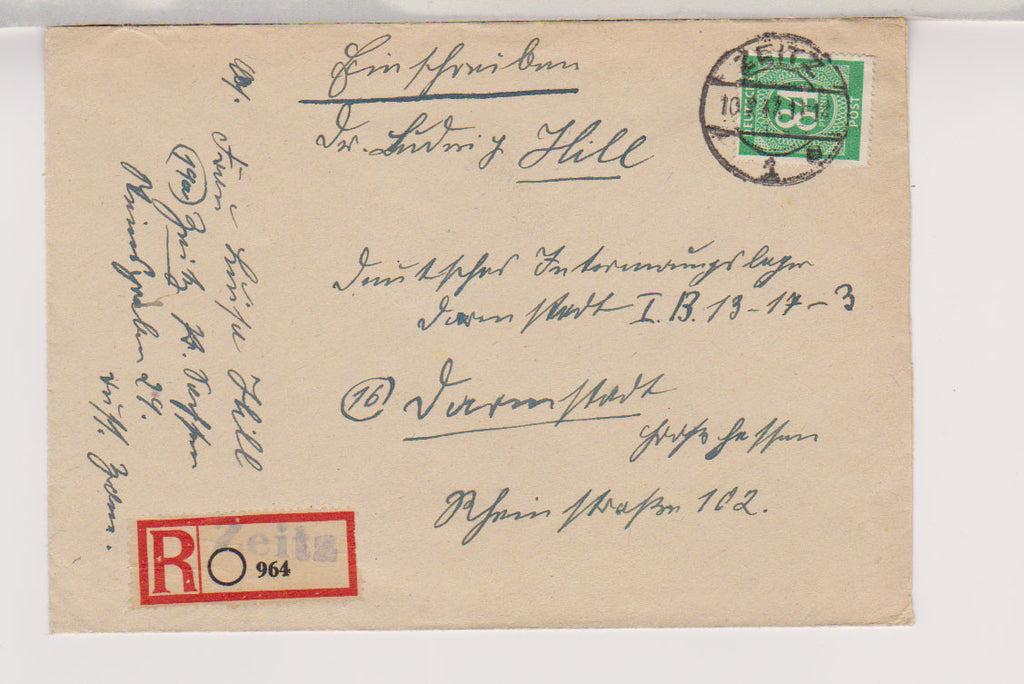 Einschreiben
Dr. Ludwig Hill
Deutsches Internierungslager
Darmstadt I.B. 13-17-3
(16) Darmstadt
Groß Hessen
Rheinstraße 102.
Frau Luise Hill
(19a) Zeitz Pr. Sachsen
24.
russ. Zone.
ZEITZ
1
84
POST
R Zeitz
964